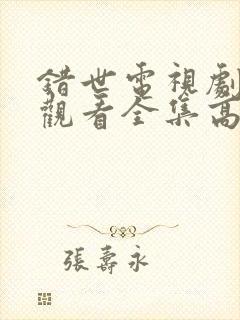 錯世電視劇
觀看全集高
張壽永